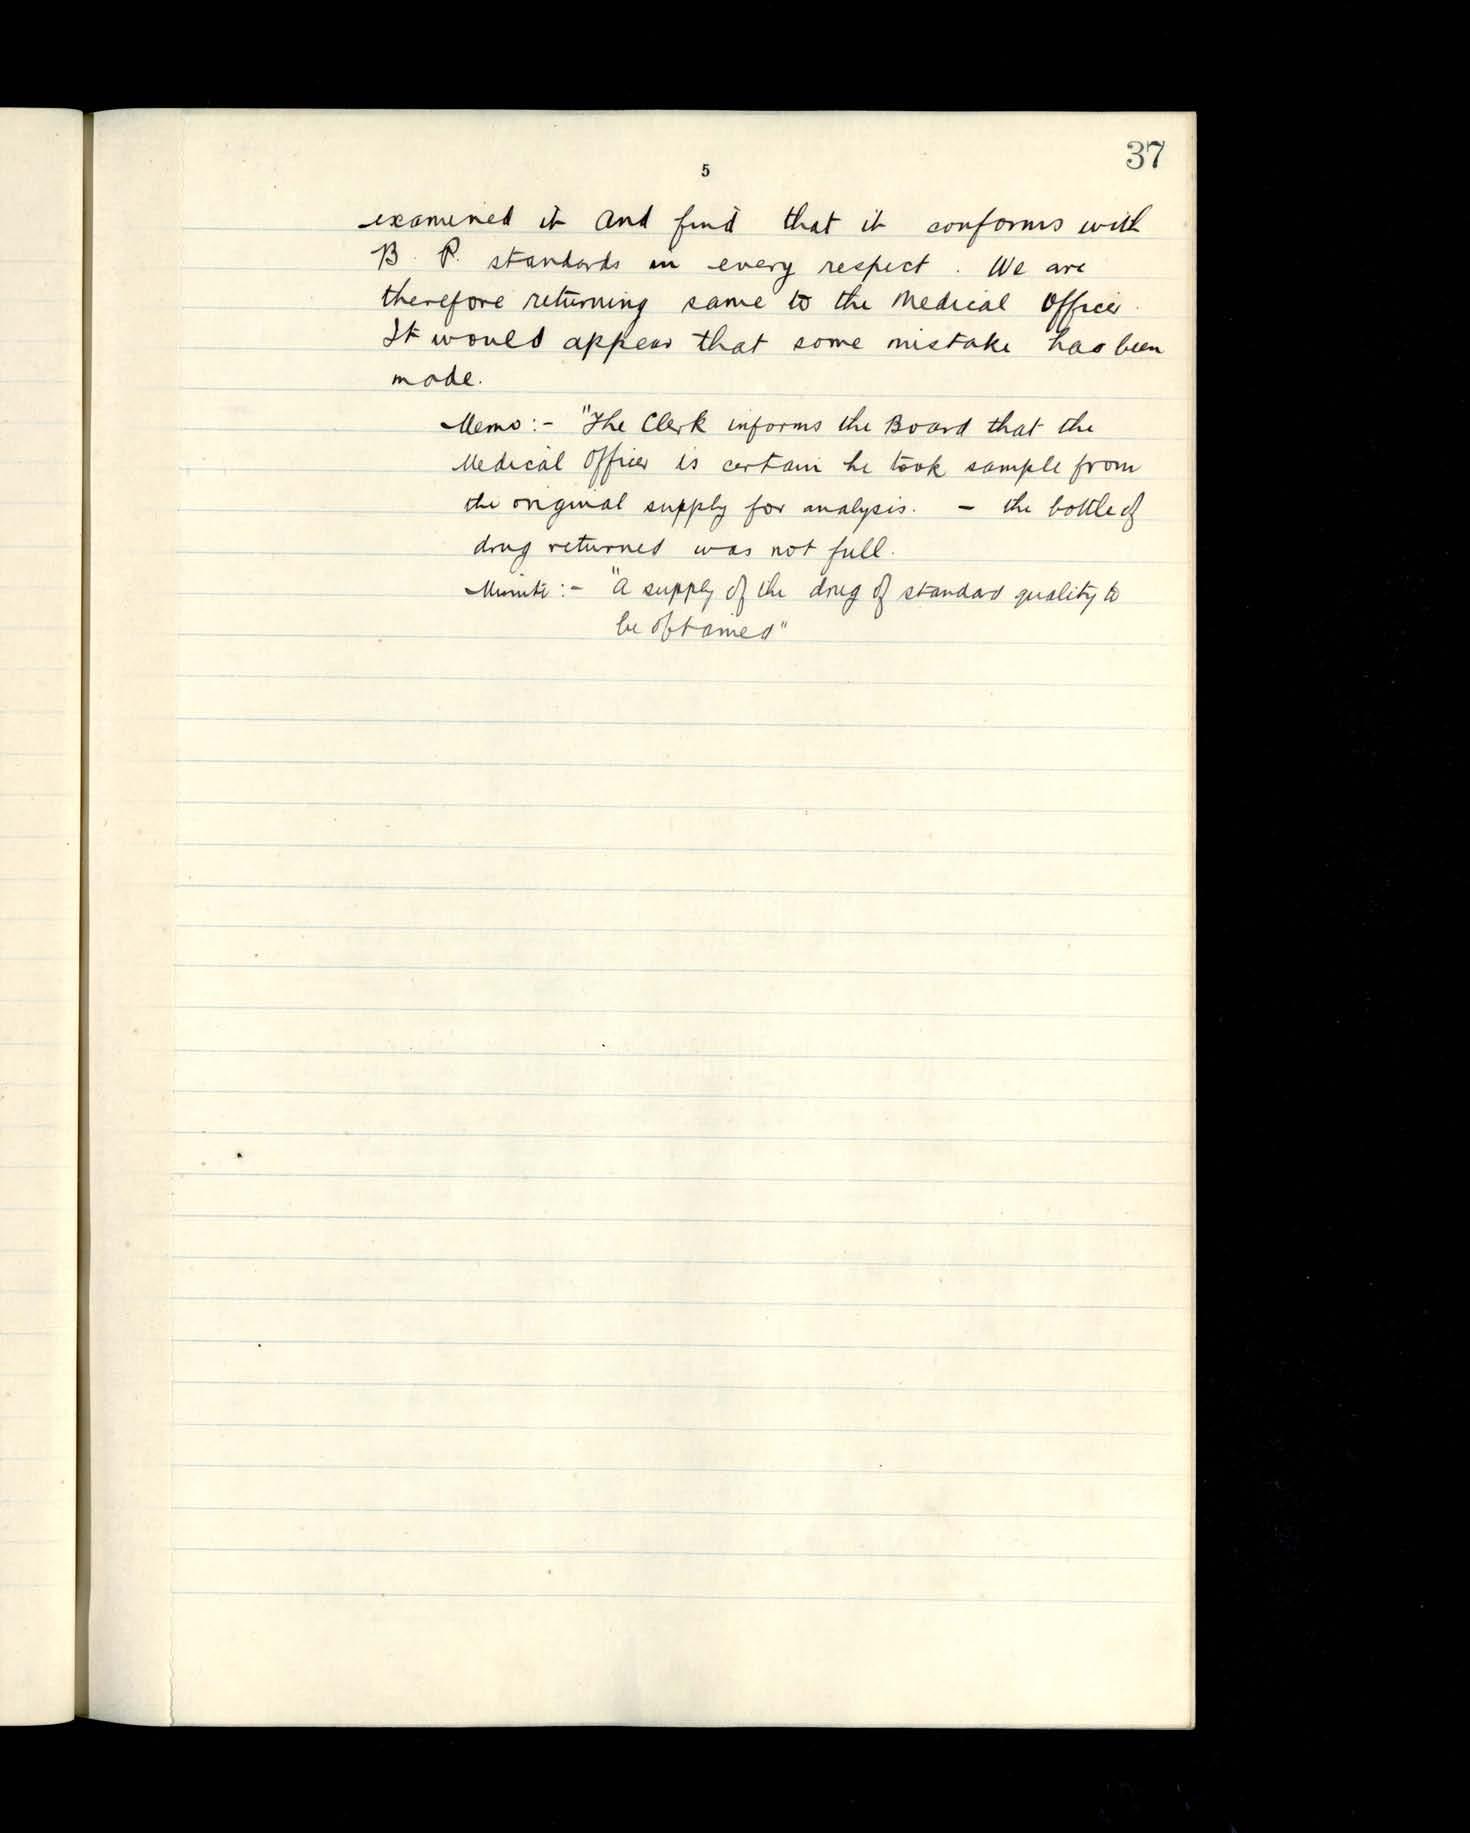 37
5
examined it and find that it conforms with
B. P. standards in every respect. We are
therefore returning same to the Medical Officer.
It would appear that some mistake has been
made.
Memo:- "The Clerk informs the Board that the
Medical Officer is certain he took sample from
the original supply for analysis. - the bottle of
drug returned was not full.
Minute:- "A supply of the drug of standard quality to
be obtained"